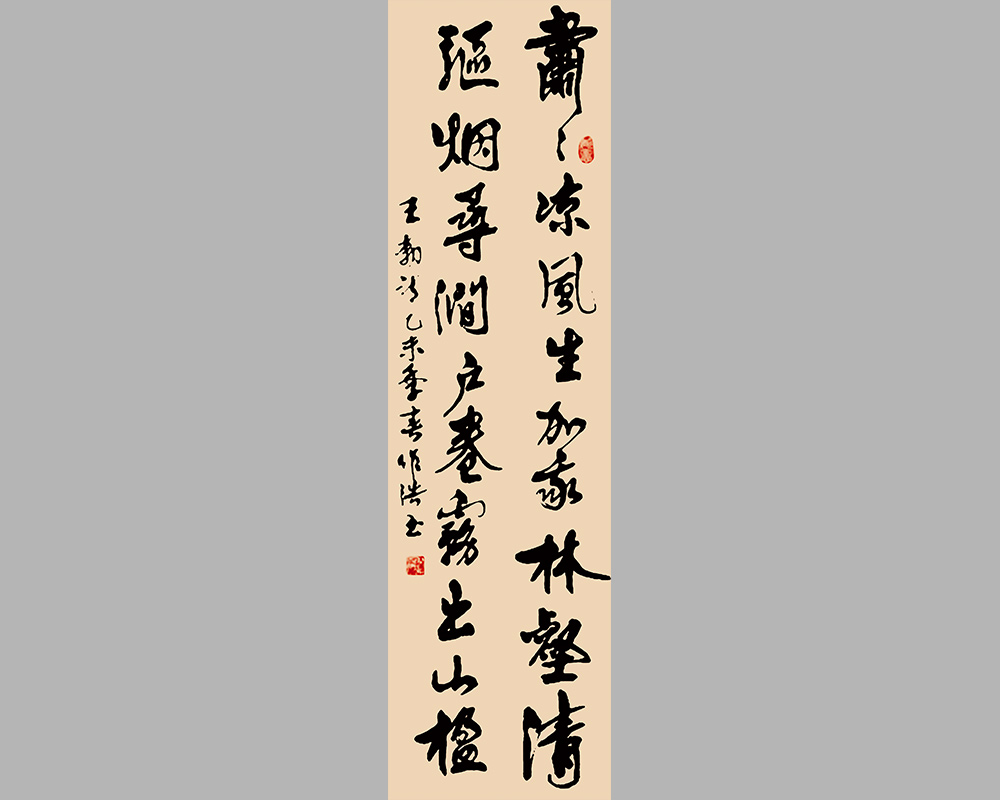 肅〻凉風生加我林壑清
驅烟尋澗户卷霧出山楹
王勃诗乙未季春作浩书